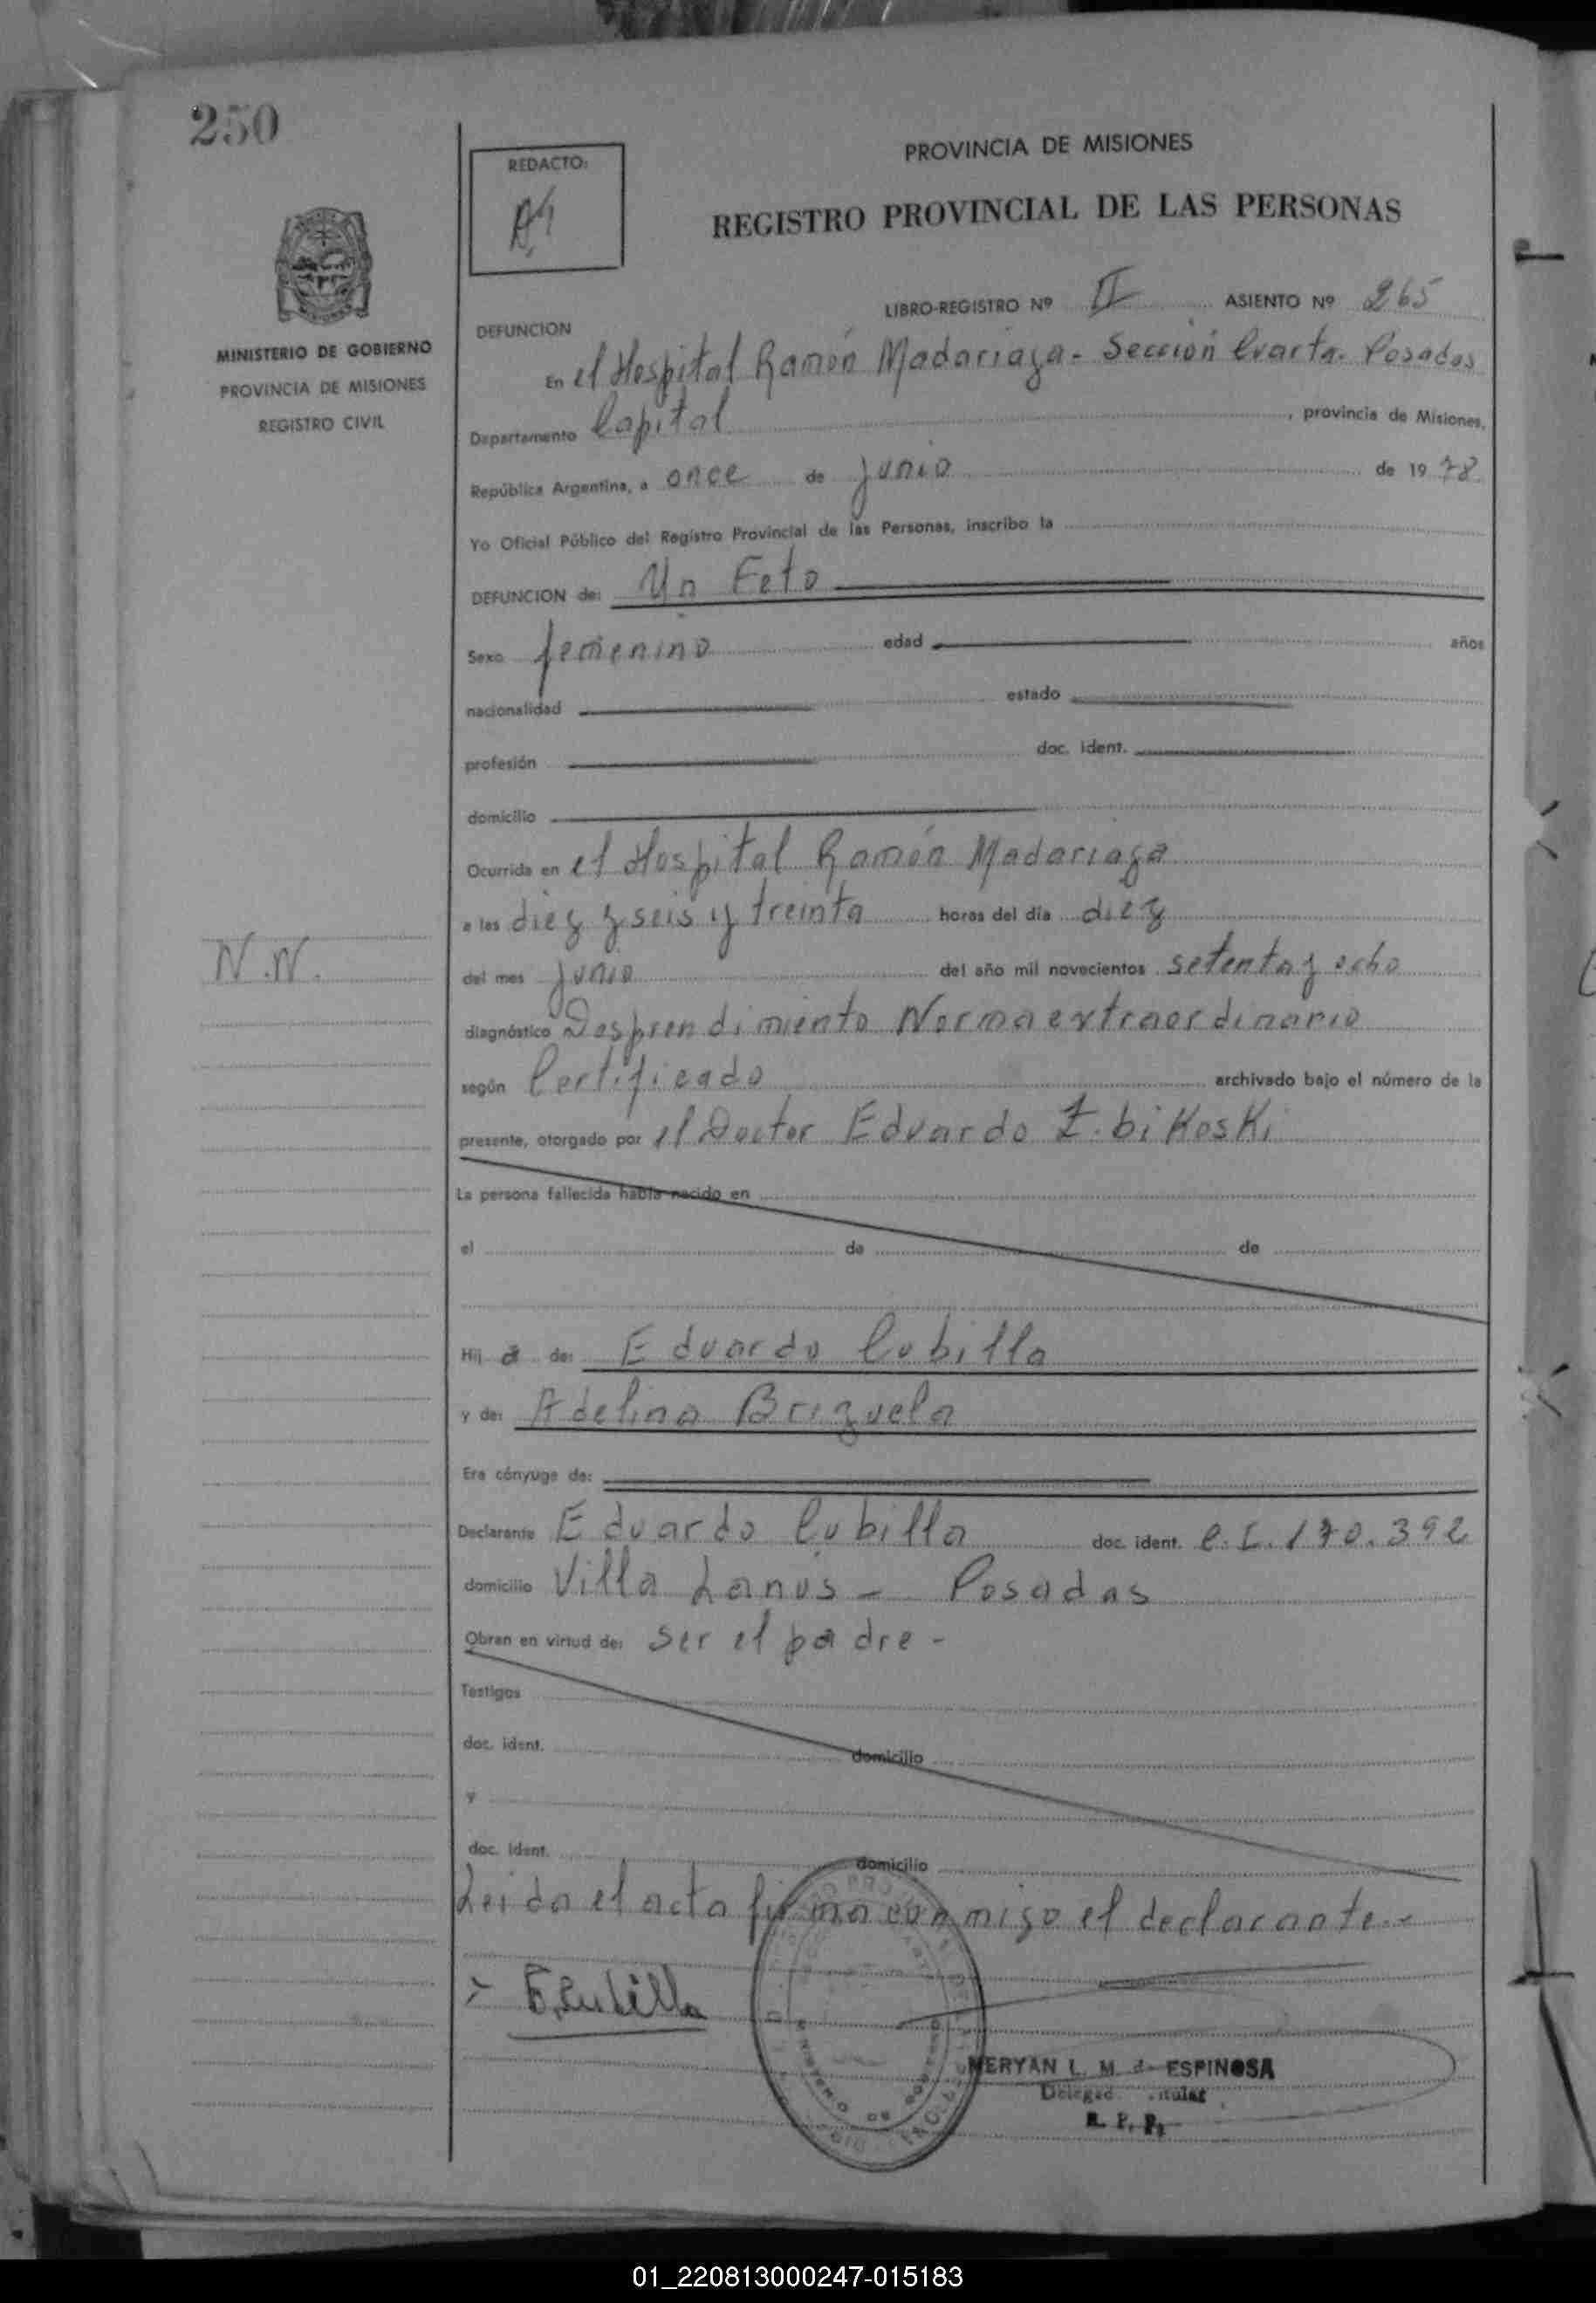 250
PROVINCIA DE MISIONES
REDACTO:
REGISTRO PROVINCIAL DE LAS PERSONAS
LIBRO-REGISTRO Nº II ASIENTO Nº 265
MINISTERIO DE GOBIERNO
PROVINCIA DE MISIONES
REGISTRO CIVIL
DEFUNCION
En el Hospital Ramón Madariaga - Sección Cuarta. Posadas
Departamento Capital, provincia de Misiones,
República Argentina, a once de junio de 1978
Yo Oficial Público del Registro Provincial de las Personas, inscribo la
DEFUNCION de: Un Feto
Sexo femenino edad años
nacionalidad estado
profesión doc. ident.
domicilio
Ocurrida en el Hospital Ramón Madariaga
a las diez y seis y treinta horas del día diez
N.N.
del mes junio del año mil novecientos setenta y ocho
diagnóstico Desprendimiento Normaextraordinario
según Certificado archivado bajo el número de la
presente, otorgado por el Doctor Eduardo Z. biKosKi
La persona fallecida había nacido en
el de de
Hij a de: Eduardo Cubilla
y de: Adelina Brizuela
Era cónyuge de:
Declarante Eduardo Cubilla doc. ident. C.I. 170.392
domicilio Villa Lanús - Posadas
Obran en virtud de: ser el padre -
Testigos
doc. ident. domicilio
y
doc. ident. domicilio
Leida el acta firma conmigo el declarante.-
E. Cubilla
MERYAN L. M. de ESPINOSA
R. P. P.
01_220813000247-015183